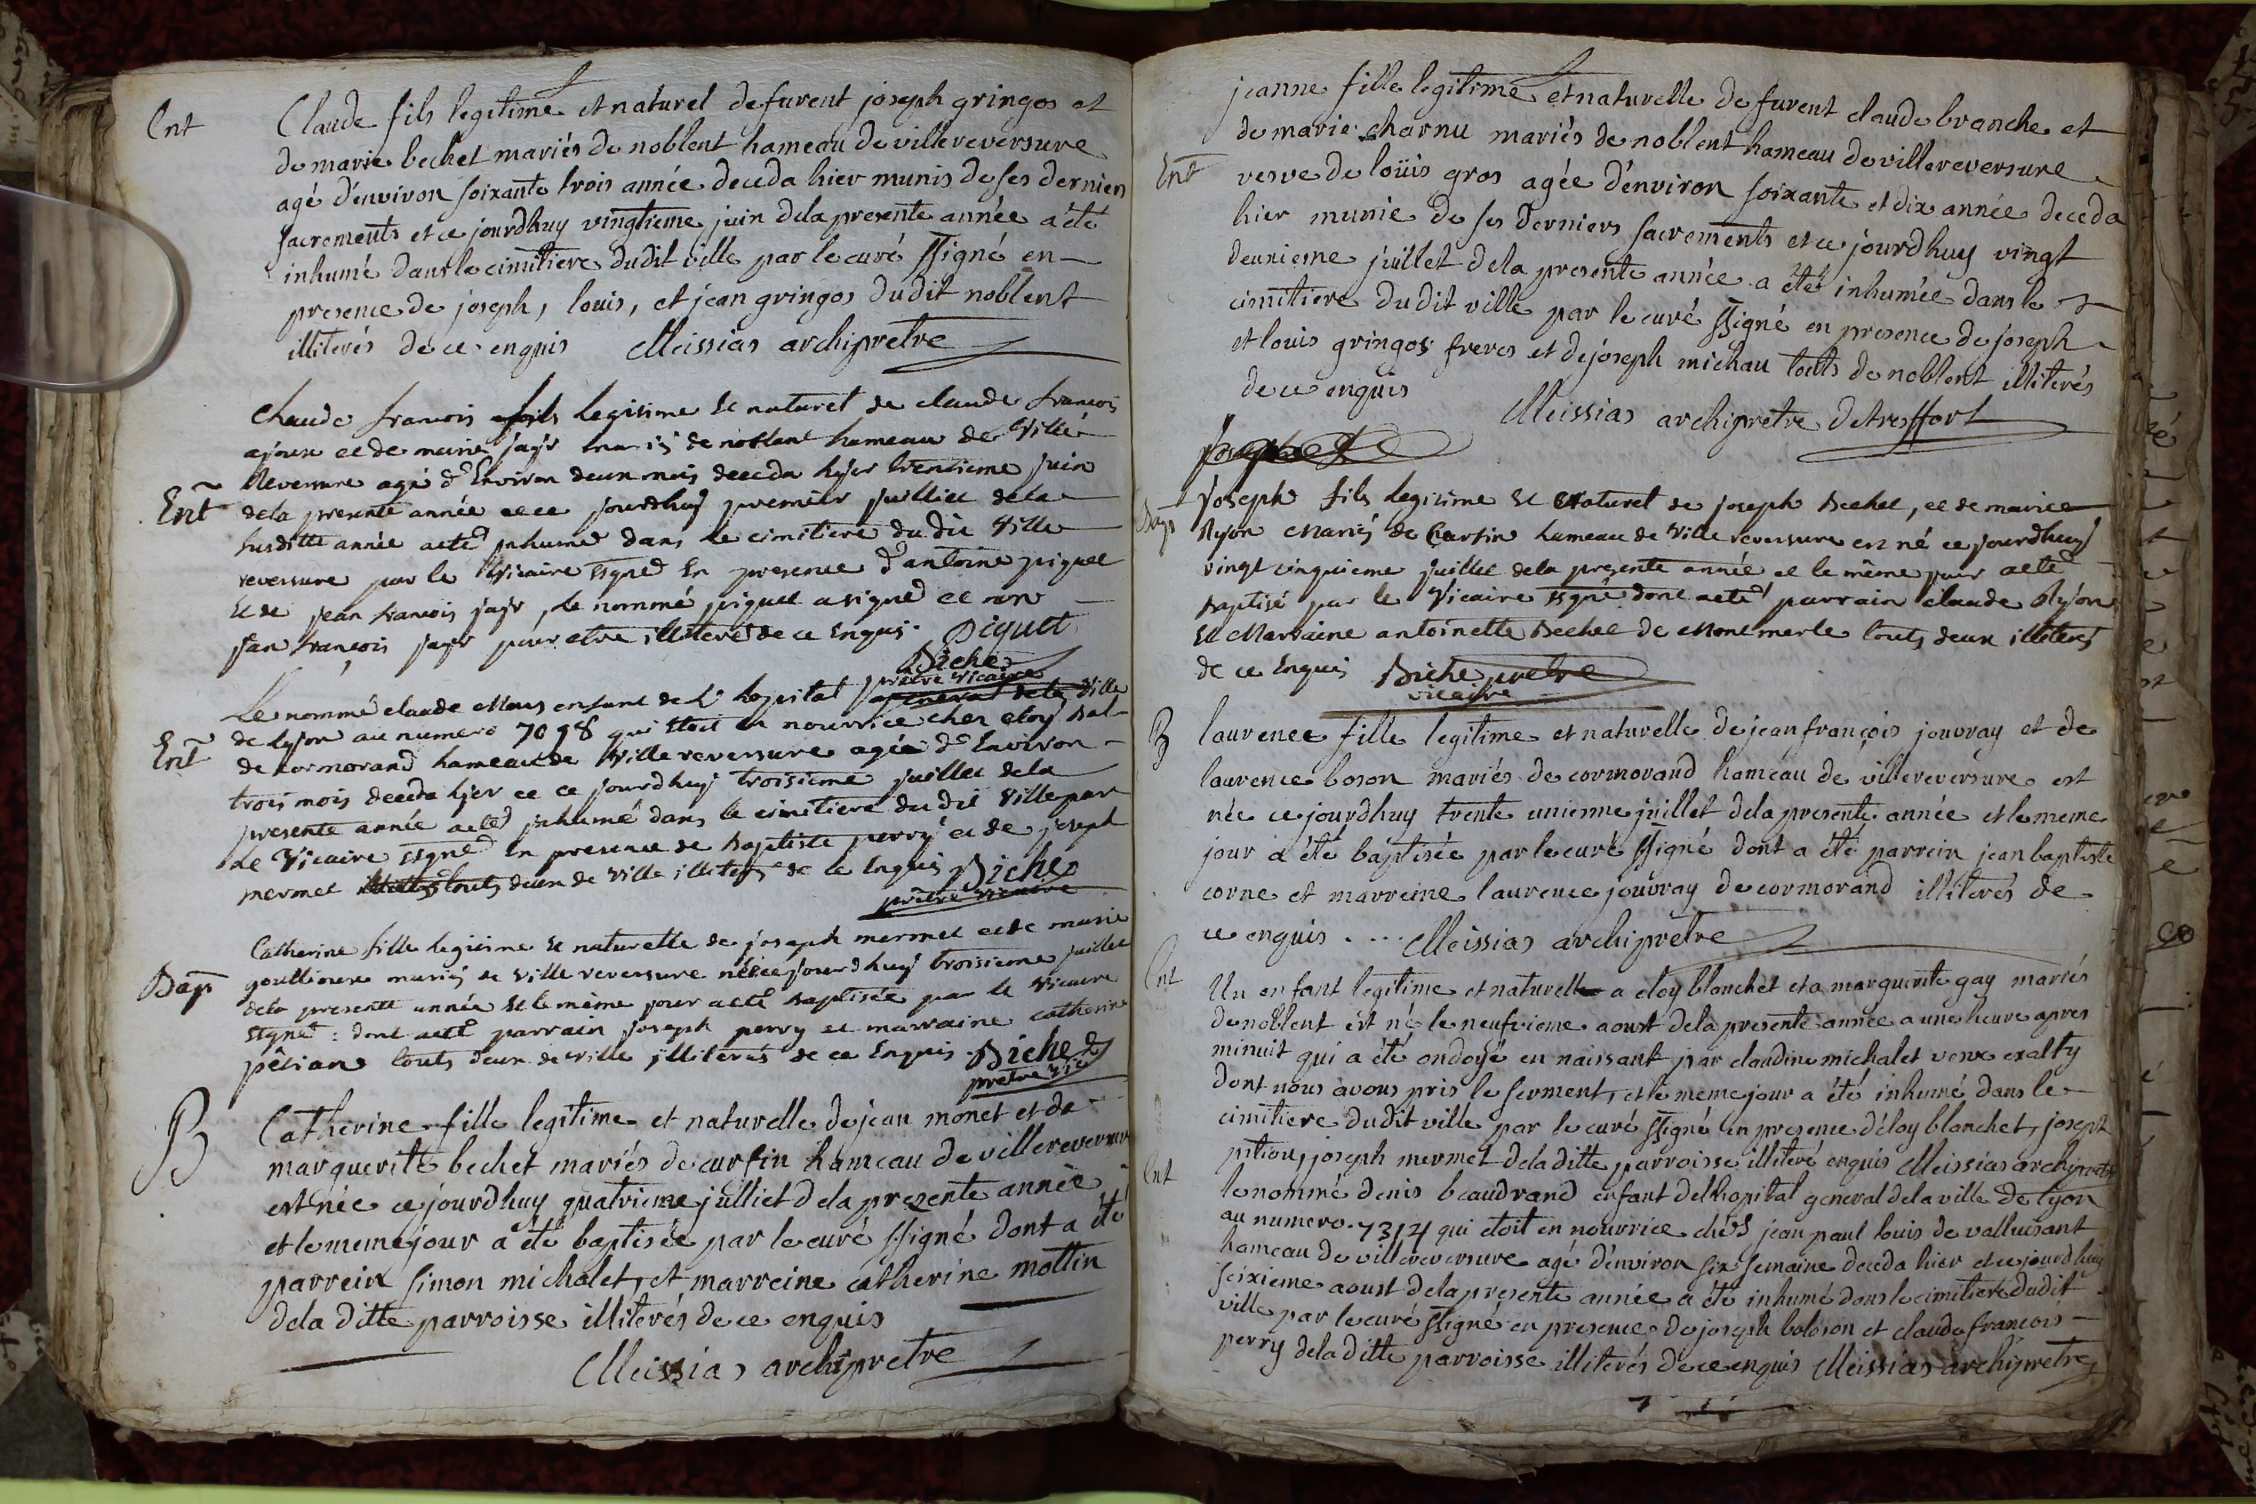 Ent
Claude fils legitime et naturel de furent joseph gringos et
de marie bechet mariés de noblent hameau de villereversure
agé d'environ soixante trois année deceda hier munis de ses derniers
sacrements et ce jourdhuy vingtieme juin dela presente année a été
inhumé dans le cimitiere dudit ville par le curé ssigné en
presence de joseph, louis, et jean gringos dudit noblent
illiterés de ce enquis Meissias archipretre
Claude francois fils legitime et naturel de claude francois
et de marie jayr mariés de noblent hameau de Ville
Reversure agé d'Environ deux mois deceda hyer trentieme juin
Ent
dela presente année et ce jourdhuy premier juillet dela
susditte année a eté jnhumé dans le cimitiere du dit Ville
reversure par le Vicaire ssigné En presence d'antoine piquet
Et de jean francois jayr, le nommé piquet a signé et non
jean françois jayr pour etre illiteré de ce Enquis. Piquet
Biche
prêtre vicaire
Le nommé claude enfant de L'hopital general de la Ville
de Lyon au numero 7098 qui Etoit en nourrice chez eloy
Ent
de cormorand hameau de Ville reversure agée d'Environ
trois mois deceda hyer et ce jourdhuy troisieme juillet dela
presente année a eté jnhumé dans le cimitiere du dit Ville par
Le Vicaire ssigné En presence de baptiste perry et de joseph
mermet touts deux de Ville illiterés de ce Enquis Biche
prêtre vicaire
Catherine fille legitime et naturelle de joseph mermet et de marie
Bap
mariés de Ville reversure née ce jourdhuy troisieme juillet
dela presente année et le même jour a eté baptisée par le Vicaire
ssigné : dont a eté parrain joseph perry et marraine catherine
touts deux de Ville jlliterés de ce Enquis. Biche
prêtre vic
B
Catherine fille legitime et naturelle de jean monet et de
marguerite bechet mariés de curfin hameau de villereversure
est née ce jourdhuy quatrieme julliet dela presente année
et le meme jour a été baptisée par le curé ssigné dont a été
parrein simon michalet, et marreine catherine mottin
dela ditte parroisse illiterés de ce enquis
Meissias archipretre
jeanne fille legitime et naturelle de furent claude branche et
de marie charnu mariés de noblent hameau de villereversure
Ent
vesve de loüis gros agée d'environ soixante et dix année deceda
hier munie de ses derniers sacrements et ce jourdhuy vingt
deunieme juillet dela presente année a été inhumée dans le
cimitiere dudit ville par le curé ssigné en presence de joseph
et louis gringos freres et de joseph michau touts de noblent illiterés
de ce enquis
Meissias archipretre de treffort
Joseph fils legitime et naturel de joseph bechet, et de marie
Bap
Ryson Mariés de Curfin hameau de Ville reversure en né ce jourdhuy
vingt cinquieme juillet dela presente année et le même jour a eté
baptisé par le Vicaire ssigné dont a eté parrain claude Ryson
et Marraine antoinette bechet de Montmerle touts deux illiterés
de ce Enquis Biche pretre
vicaire
B
laurence fille legitime et naturelle de jean françois jouvray et de
laurence boson mariés de cormorand hameau de villereversure est
née ce jourdhuy trente unieme juillet dela presente année et le meme
jour a été baptisée par le curé ssigné dont a été parrein jean baptiste
corne et marreine laurence jouvray de cormorand illiterés de
ce enquis .... Meissias archipretre
Ent
Un enfant legitime et naturelle a eloy blanchet et a marguerite gay mariés
de noblent est né le neufvieme aoust dela presente année a une heure apres
minuit qui a été ondoyé en naissant par claudine michalet
dont nous avons pris le serment, et le meme jour a été inhumé dans le
cimitiere dudit ville par le curé ssigné en presence d'éloy blanchet, joseph
pitiou, joseph mermet dela ditte parroisse illiteré enquis Meissias archipretre
Ent
le nommé denis beaudrand enfant del hopital general dela ville de lyon
au numero 7314 qui etoit en nourrice chés jean paul louis de valluisant
hameau de villereversure agé d'environ six semaine deceda hier et ce jourdhuy
seixieme aoust dela presente année a été inhumé dans le cimitiere dudit
ville par le curé ssigné en presence de joseph boloson et claude francois
perry dela ditte parroisse illiterés de ce enquis Meissias archipretre